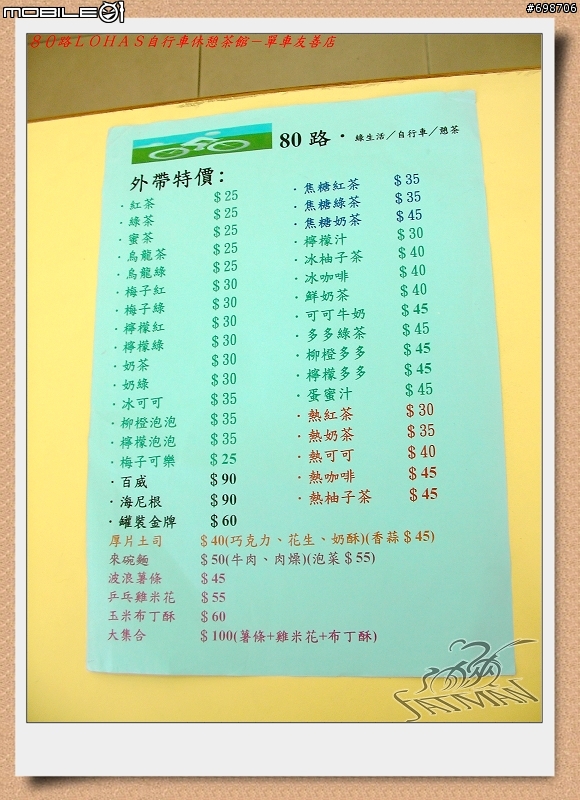 MOBILE01
#698706
８０路ＬＯＨＡＳ自行車休憩茶館－單車友善店
80 路・綠生活／自行車／憩茶
外帶特價：
・紅茶 $25
・綠茶 $25
・蜜茶 $25
・烏龍茶 $25
・烏龍綠 $25
・梅子紅 $30
・梅子綠 $30
・檸檬紅 $30
・檸檬綠 $30
・奶茶 $30
・奶綠 $30
・冰可可 $35
・柳橙泡泡 $35
・檸檬泡泡 $35
・梅子可樂 $25
・百威 $90
・海尼根 $90
・罐裝金牌 $60
・焦糖紅茶 $35
・焦糖綠茶 $35
・焦糖奶茶 $45
・檸檬汁 $30
・冰柚子茶 $40
・冰咖啡 $40
・鮮奶茶 $40
・可可牛奶 $45
・多多綠茶 $45
・柳橙多多 $45
・檸檬多多 $45
・蛋蜜汁 $45
・熱紅茶 $30
・熱奶茶 $35
・熱可可 $40
・熱咖啡 $45
・熱柚子茶 $45
厚片土司 $40(巧克力、花生、奶酥)(香蒜$45)
來碗麵 $50(牛肉、肉燥)(泡菜$55)
波浪薯條 $45
乒乓雞米花 $55
玉米布丁酥 $60
大集合 $100(薯條+雞米花+布丁酥)
FATMAN